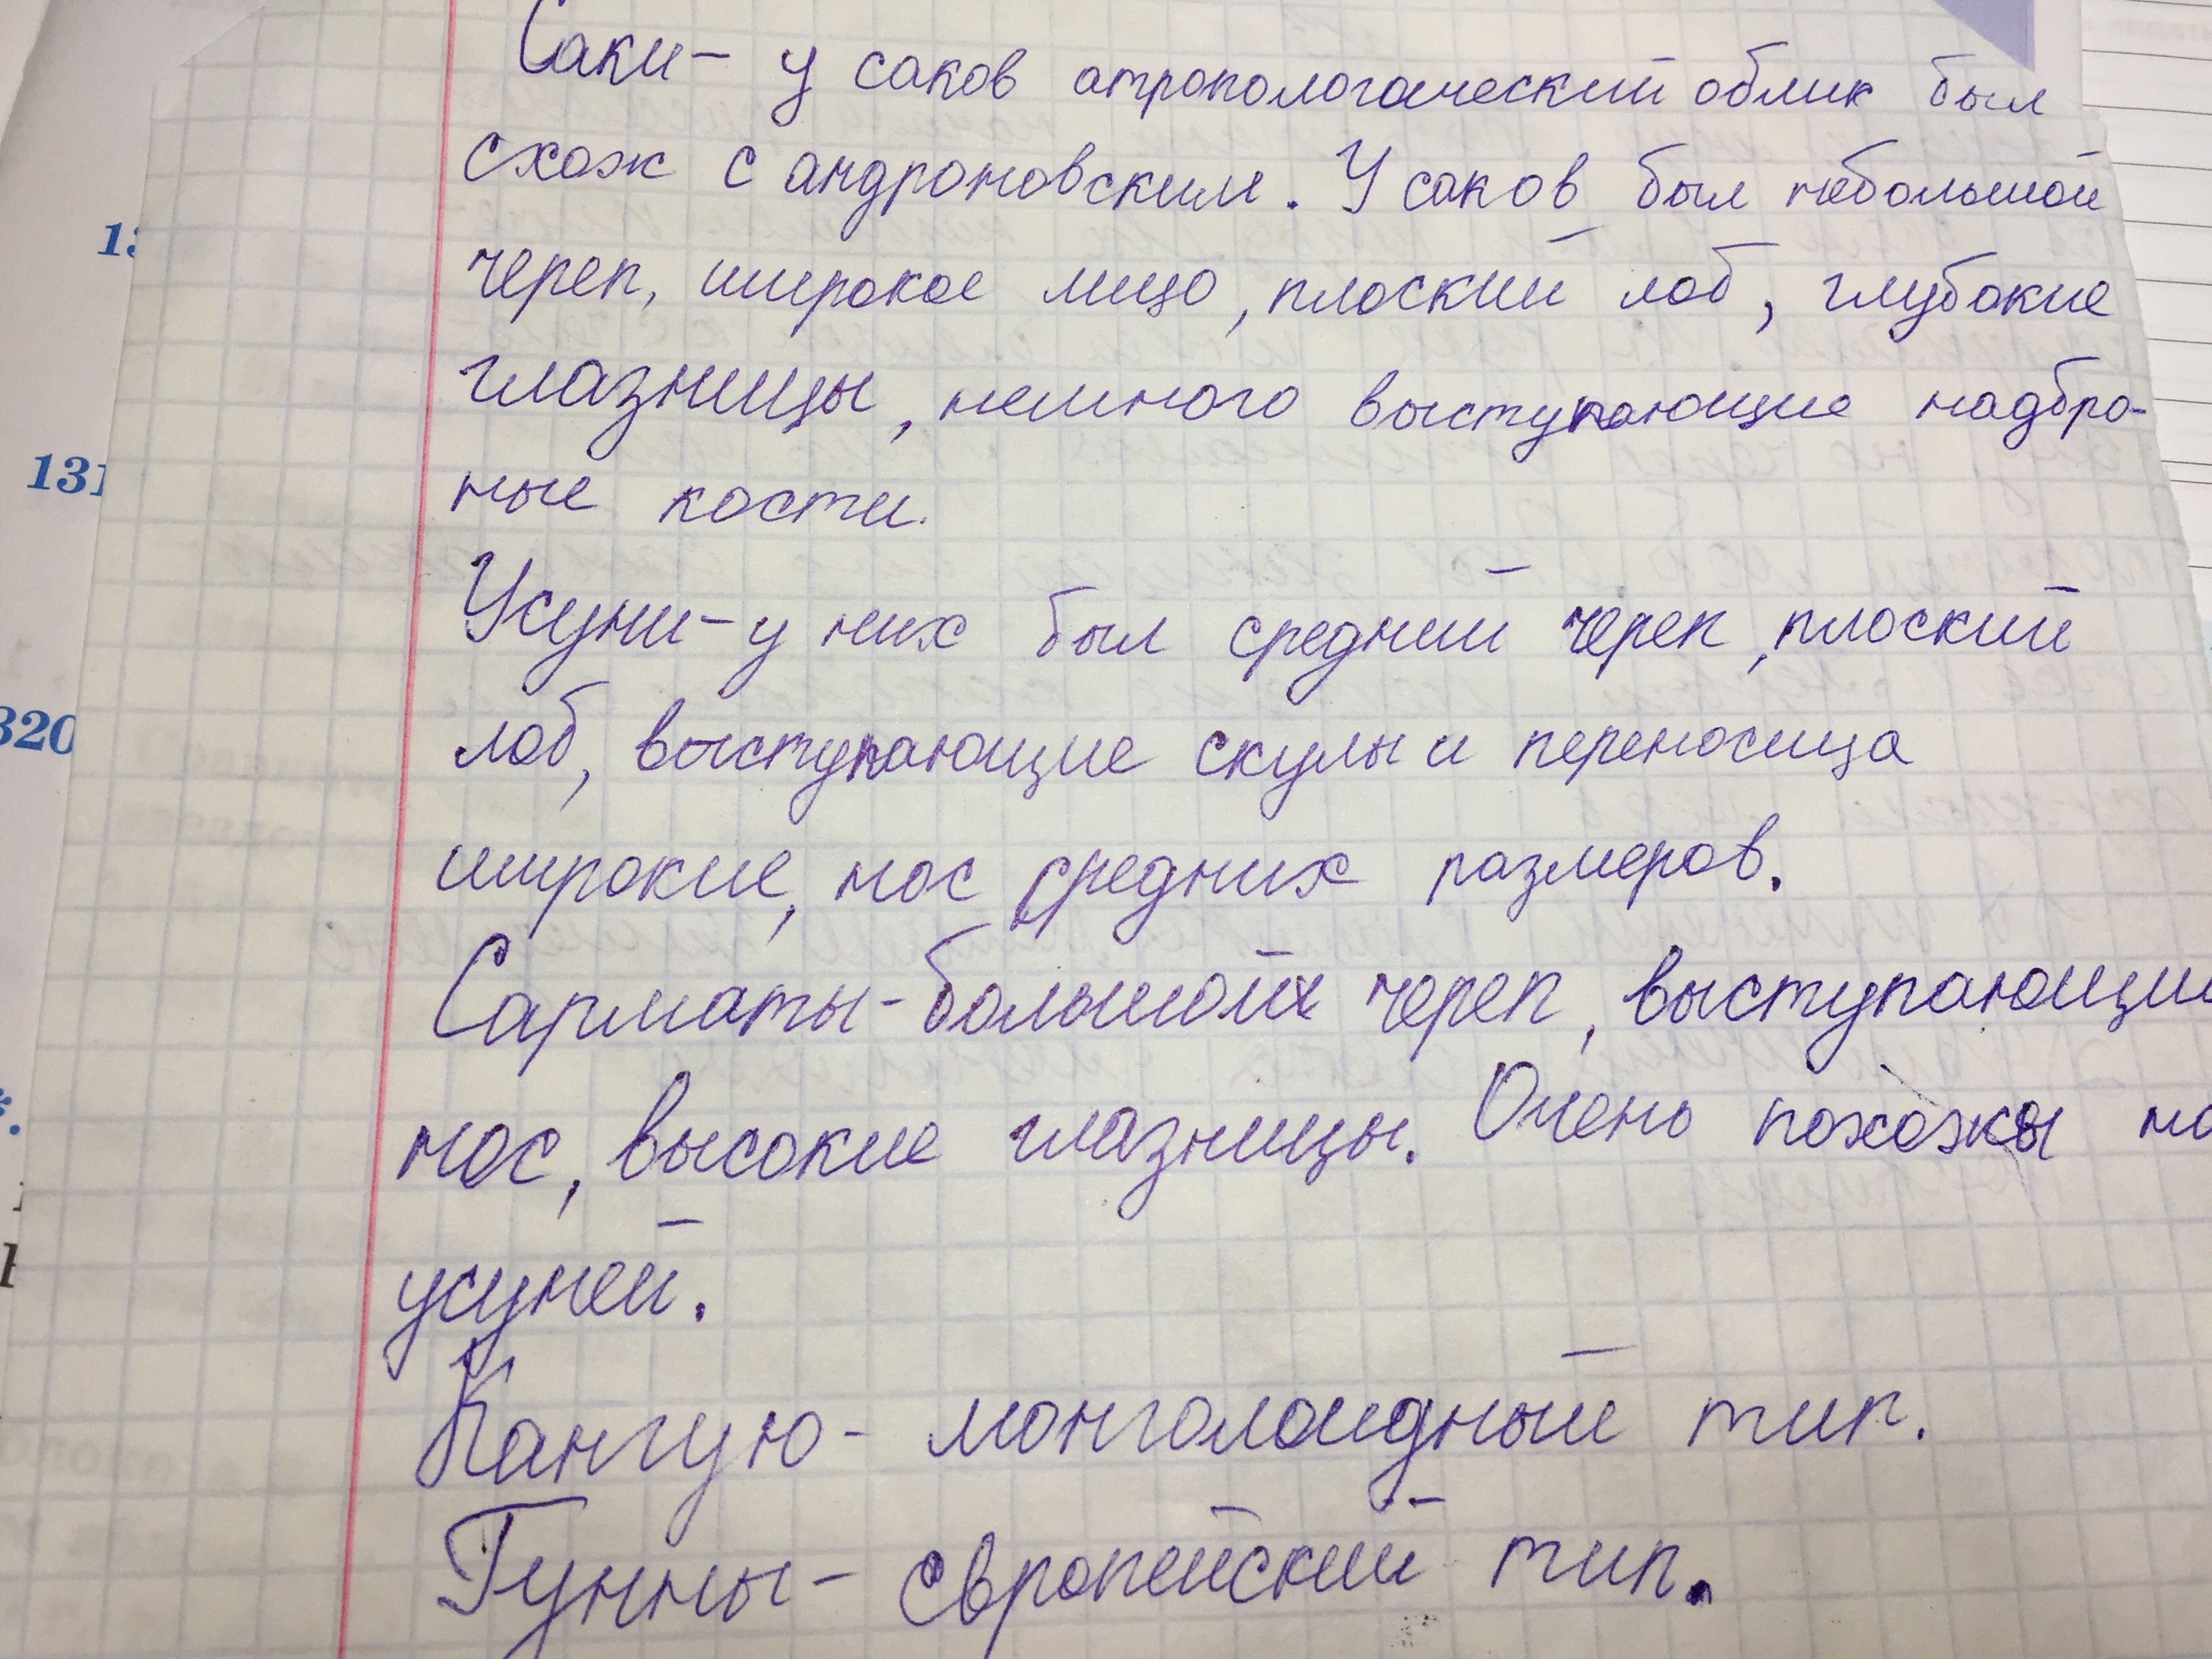 Саки – у саков атропологический облик был
схож с андроновским. У саков был небольшой
череп, широкое лицо, плоский лоб, глубокие
глазницы, немного выступающие надбро-
ные кости.
Усуни – у них был средний череп, плоский
лоб, выступающие скулы и переносица
широкие, нос средних размеров.
Сарматы - большой череп, выступающи
нос, высокие глазницы. Очень похожы на
усуней.
Кангую - монголоидный тип.
Гунны – европейский тип.
13
131
320